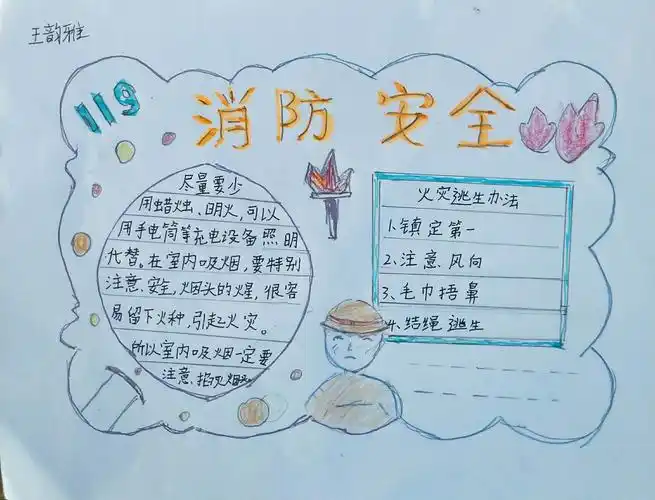 王韵雅
119
消防安全
尽量要少
用蜡烛、明火,可以
用手电筒等充电设备照明
代替。在室内吸烟,要特别
注意、安全,烟头的火星,很容
易留下火种,引起火灾。
所以室内吸烟一定要
注意、掐灭烟
火灾逃生办法
1.镇定第一
2、注意风向
3、毛巾捂鼻
4、结绳逃生